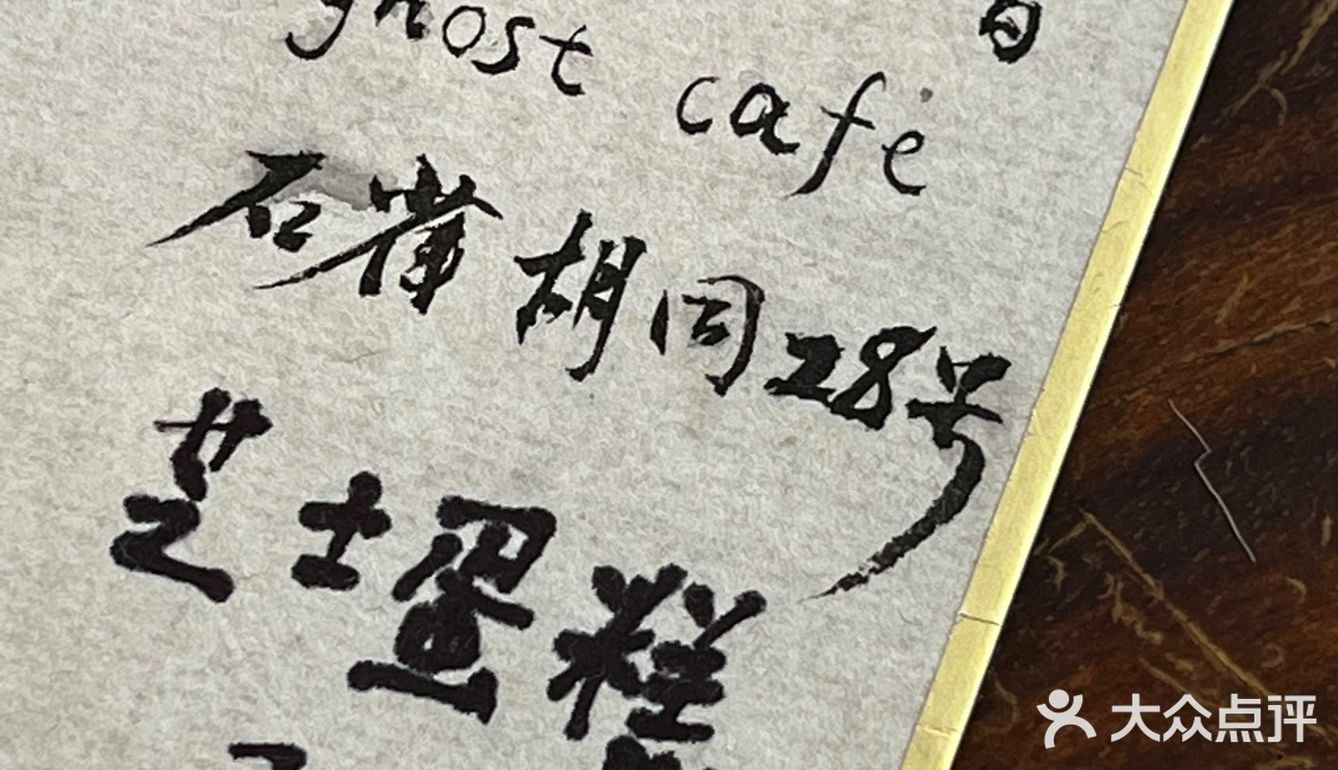 ghost cafe
石雀胡同28号
芝士蛋糕
大众点评